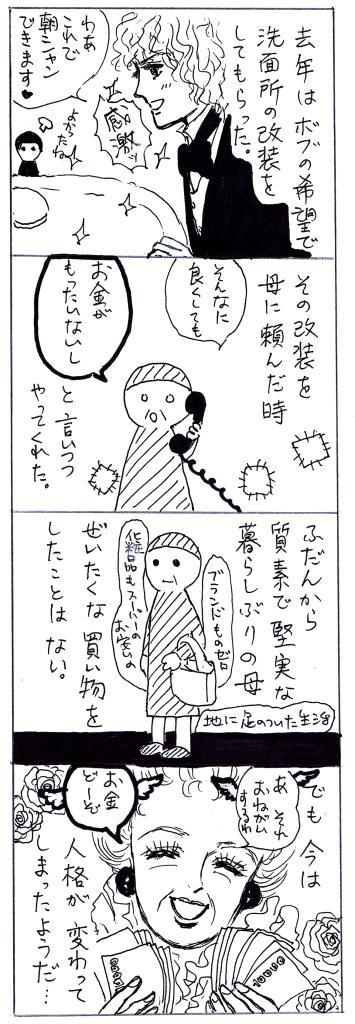 去年はボブの希望で
洗面所の改装を
してもらった。
わあ
これで
朝シャン
できます♥
感激ッ
よかったね
その改装を
母に頼んだ時
そんなに
良くしても
お金が
もったいないし
と言いつつ
やってくれた。
ふだんから
質素で堅実な
暮らしぶりの母
ブランドものゼロ
化粧品もスーパーの
お安いの
ぜいたくな買い物を
したことはない。
地に足のついた生活
でも今は
あ それ
おねがい
するわ
お金
どーぞ
人格が変わって
しまったようだ…
10000